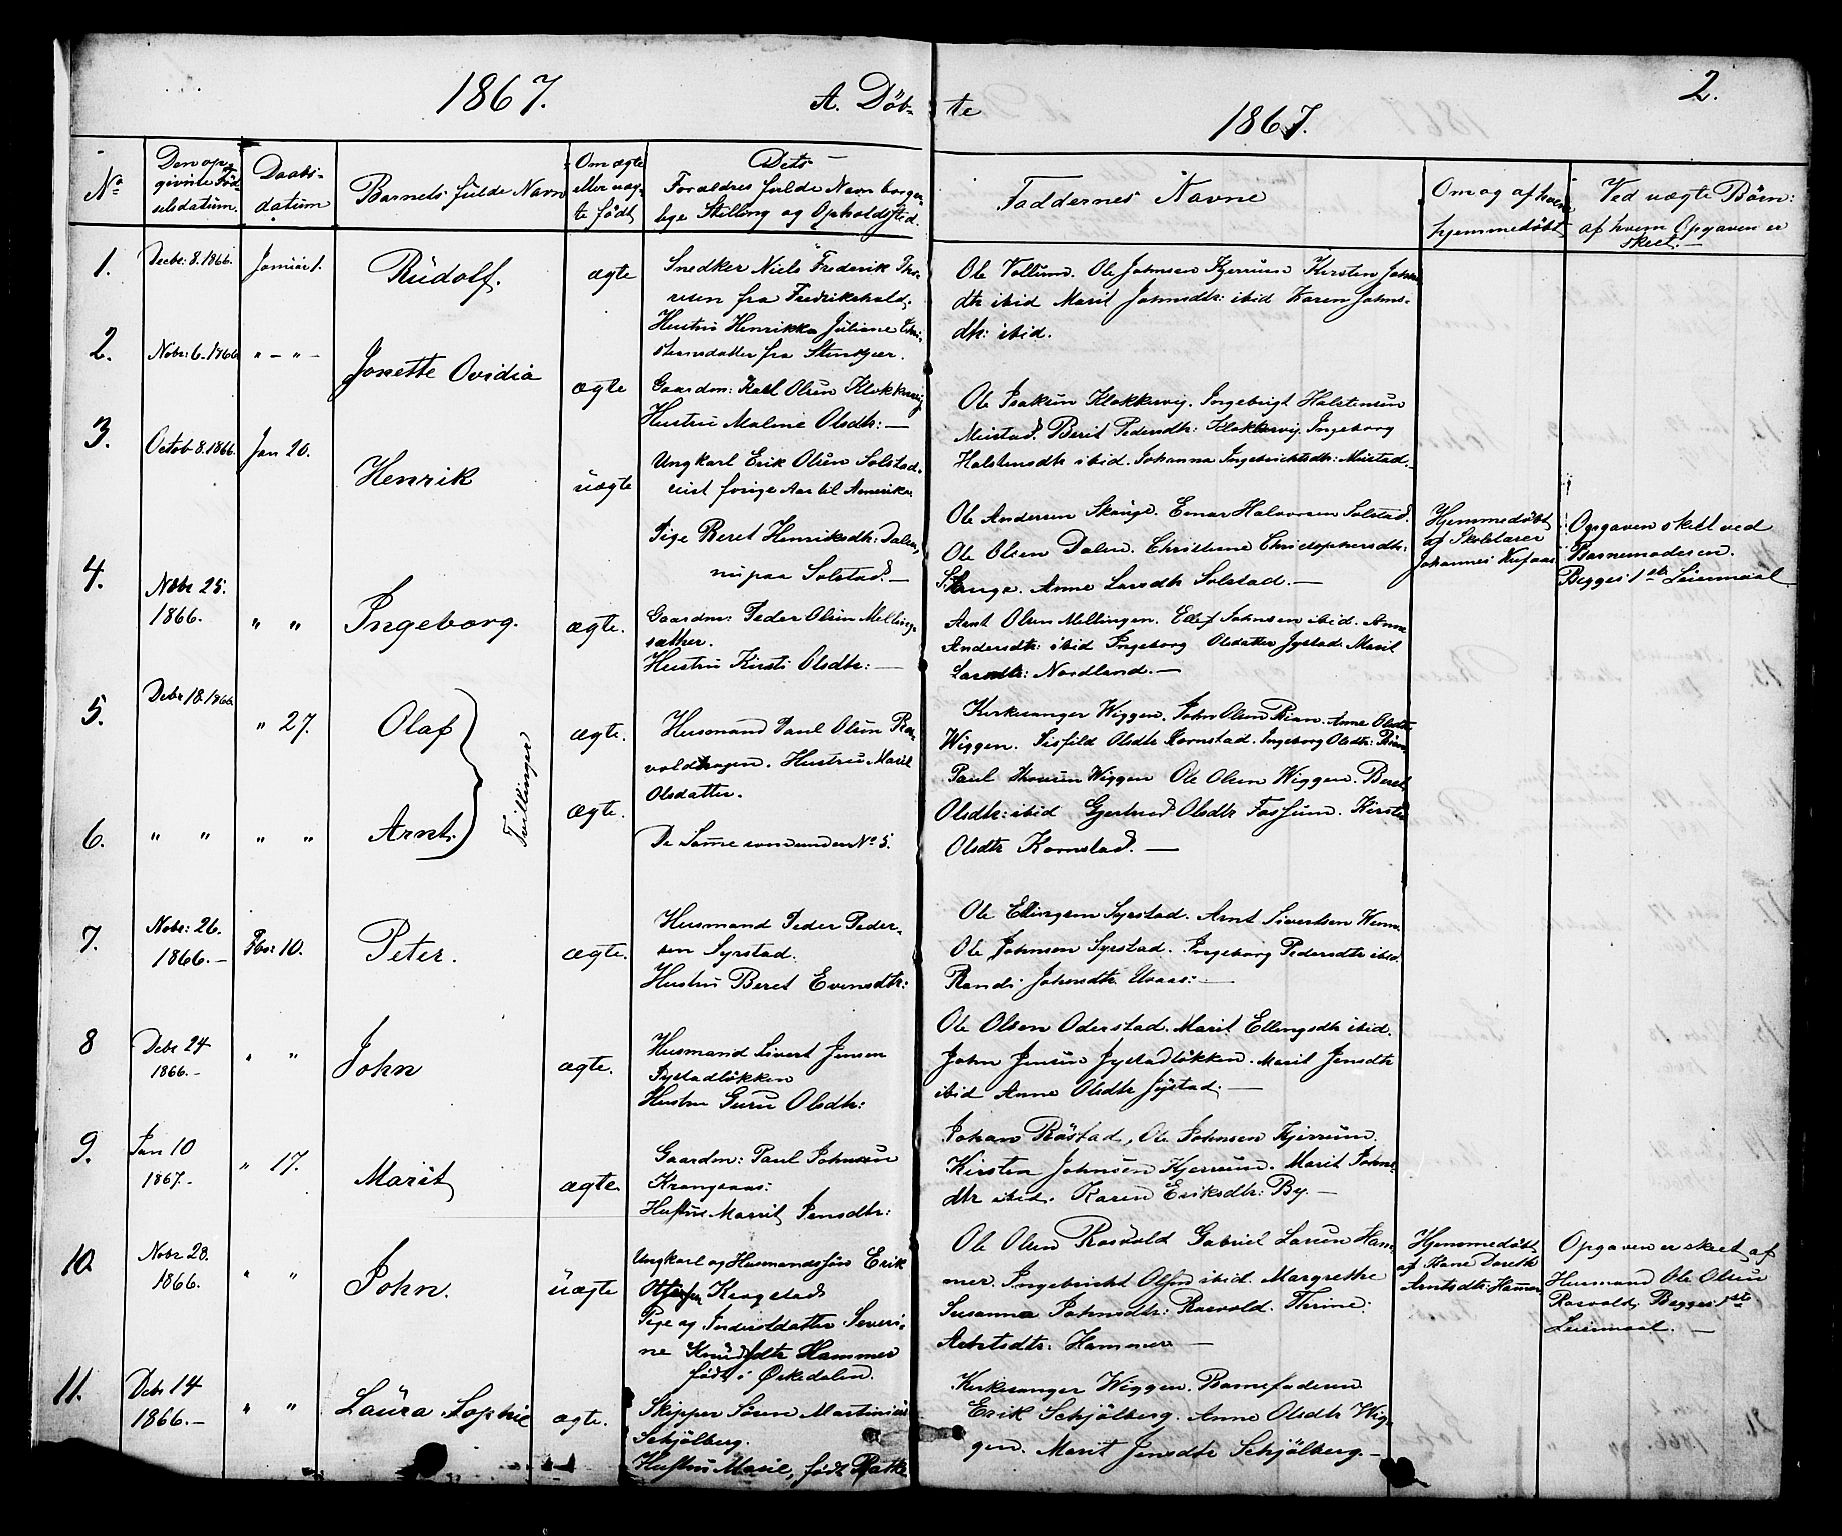 1867.
A. Døb-
te
1867.
2.
No
Den op-
givne Fød-
selsdatum.
Daabs-
datum
Barnets fulde Navn
Om ægte
eller uæg-
te født
Dets
Forældres fulde Navn borger-
lige Stilling og Opholdssted.
Faddernes Navne
Om og af hvem
hjemmedøbt
Ved uægte Børn:
af hvem Opgaven er
skeet.
1.
Decbr: 8. 1866.
Januar 1.
Rudolf.
ægte
Snedker Niels Frederik
fra Fredrikshald.
Hustru Henrikka Juliane
fra Stenkjær.
Ole Vollum. Ole Johnsen Kjerrum Kirsten Johns
dtr ibid Marit Johnsdtr: ibid Karen Johns-
dtr: ibid.
2.
Nobr: 6. 1866
" - " -
Jonette Ovidia
ægte
Gaardm: Karl Olsen Klokkervig
Hustru Maline Olsdtr: —
Ole Isaksen Klokkervig. Ingebrigt Halstensen
Meistad. Berit Pedersdtr: Klokkervig. Ingeborg
Halstensdtr ibid. Johanna Ingebrichtsdtr: Meistad. -
3.
Octob 8. 1866.
Jan 20.
Henrik
uægte
Ungkarl Erik Olsen Solstad.
reist forige Aar til Amerika
Pige Beret Henriksdtr: Dalen,
nu paa Solstad. —
Ole Andersen Skauge. Einar Halvorsen Solstad.
Ole Olsen Dalen. Christiane Christophersdtr:
Skauge. Anne Larsdtr Solstad. —
Hjemmedøbt
af Skolelærer
Johannes
Opgaven skeet ved
Barnemoderen.
Begges 1ste Leiermaal
4.
Nobr 25.
1866.
" "
Ingeborg.
ægte.
Gaardm: Peder Olsen Melling-
sæther.
Hustru Kirsti Olsdtr: —
Arnt Olsen Mellingen. Ellef Johnsen ibid. Anne
Andersdtr: ibid Ingeborg Olsdatter Jystad. Marit
Larsdtr: Nordland. —
5.
Debr 18. 1866.
" 27.
Olaf
Tvillinger
ægte.
Husmand Paul Olsen
Hustru Marit
Olsdatter.
Kirkesanger Wiggen. John Olsen Rian. Anne Olsdtr
Wiggen. Olsdtr Kornstad. Ingeborg Olsdtr: Rian
Paul Wiggen Ole Olsen Wiggen. Beret
Olsdtr: ibid Gjertrud Olsdtr Fossum. Kirsti
Olsdtr Kornstad. —
6.
" "
" "
Arnt.
ægte.
De Samme som under No 5.
7.
Nobr: 26.
1866. —
Fbr: 10.
Peter.
ægte.
Husmand Peder Peder-
sen Syrstad.
Hustru Beret Evensdtr:
Ole Ellingsen Syrstad. Arnt Sivertsen
Ole Johnsen Syrstad. Ingeborg Pedersdtr ibid.
Randi Johnsdtr. Uvaas: —
8
Debr 24
1866. -
" "
John
ægte.
Husmand Sivert Jensen
Jystadløkken
Hustru Guru Olsdtr:
Ole Olsen Oderstad. Marit Ellingsdtr ibid.
John Jensen Jystadløkken. Marit Jensdtr
ibid Anne Olsdtr Jystad. —
9.
Jan 10
1867. -
" 17.
Marit
ægte.
Gaardm: Paul Johnsen
Krangsaas:
Hustru Marrit Jensdtr:
Johan Røstad, Ole Johnsen Kjerrum.
Kirsten Johnsen Kjerrum. Marit Johns-
dtr ibid. Karen Eriksdtr: By. —
10.
Nobr 28.
1866.
" "
John.
uægte
Ungkarl og Husmandssøn Erik
Ottersen Krogstad
Pige og Inderstdatter Severi-
ne Knudsdtr Hammer
født i Ørkedalen.
Ole Olsen Rosvold Gabriel Larsen Ham-
mer. Ingebricht Olsen ibid. Margrethe
Susanna Johnsdtr: Rosvold. Thrine:
Arntsdtr: Hammer —
Hjemmedøbt
af Kone Doreth
Arntsdtr: Hammer
Opgaven er skeet af
Husmand Ole Olsen
Rosvold. Begges 1ste
Leiermaal. —
11.
Debr 14
1866. —
" "
Laura Sophie
ægte.
Skipper Søren Martinius
Schjølberg.
Hustru Marie, født Rathe
Kirkesanger Wiggen. Barnefaderen
Erik Schjølberg. Anne Olsdtr Wig-
gen. Marit Jensdtr Schjølberg. —